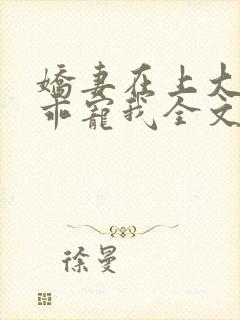 嬌妻在上大
乖寵我全文
徐曼